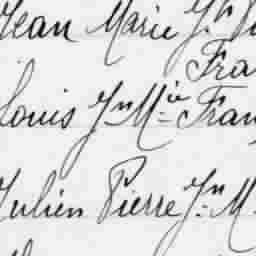 Jean Marie Jh
Fra
Louis Jn Mie Fran
Julien Pierre Jn M